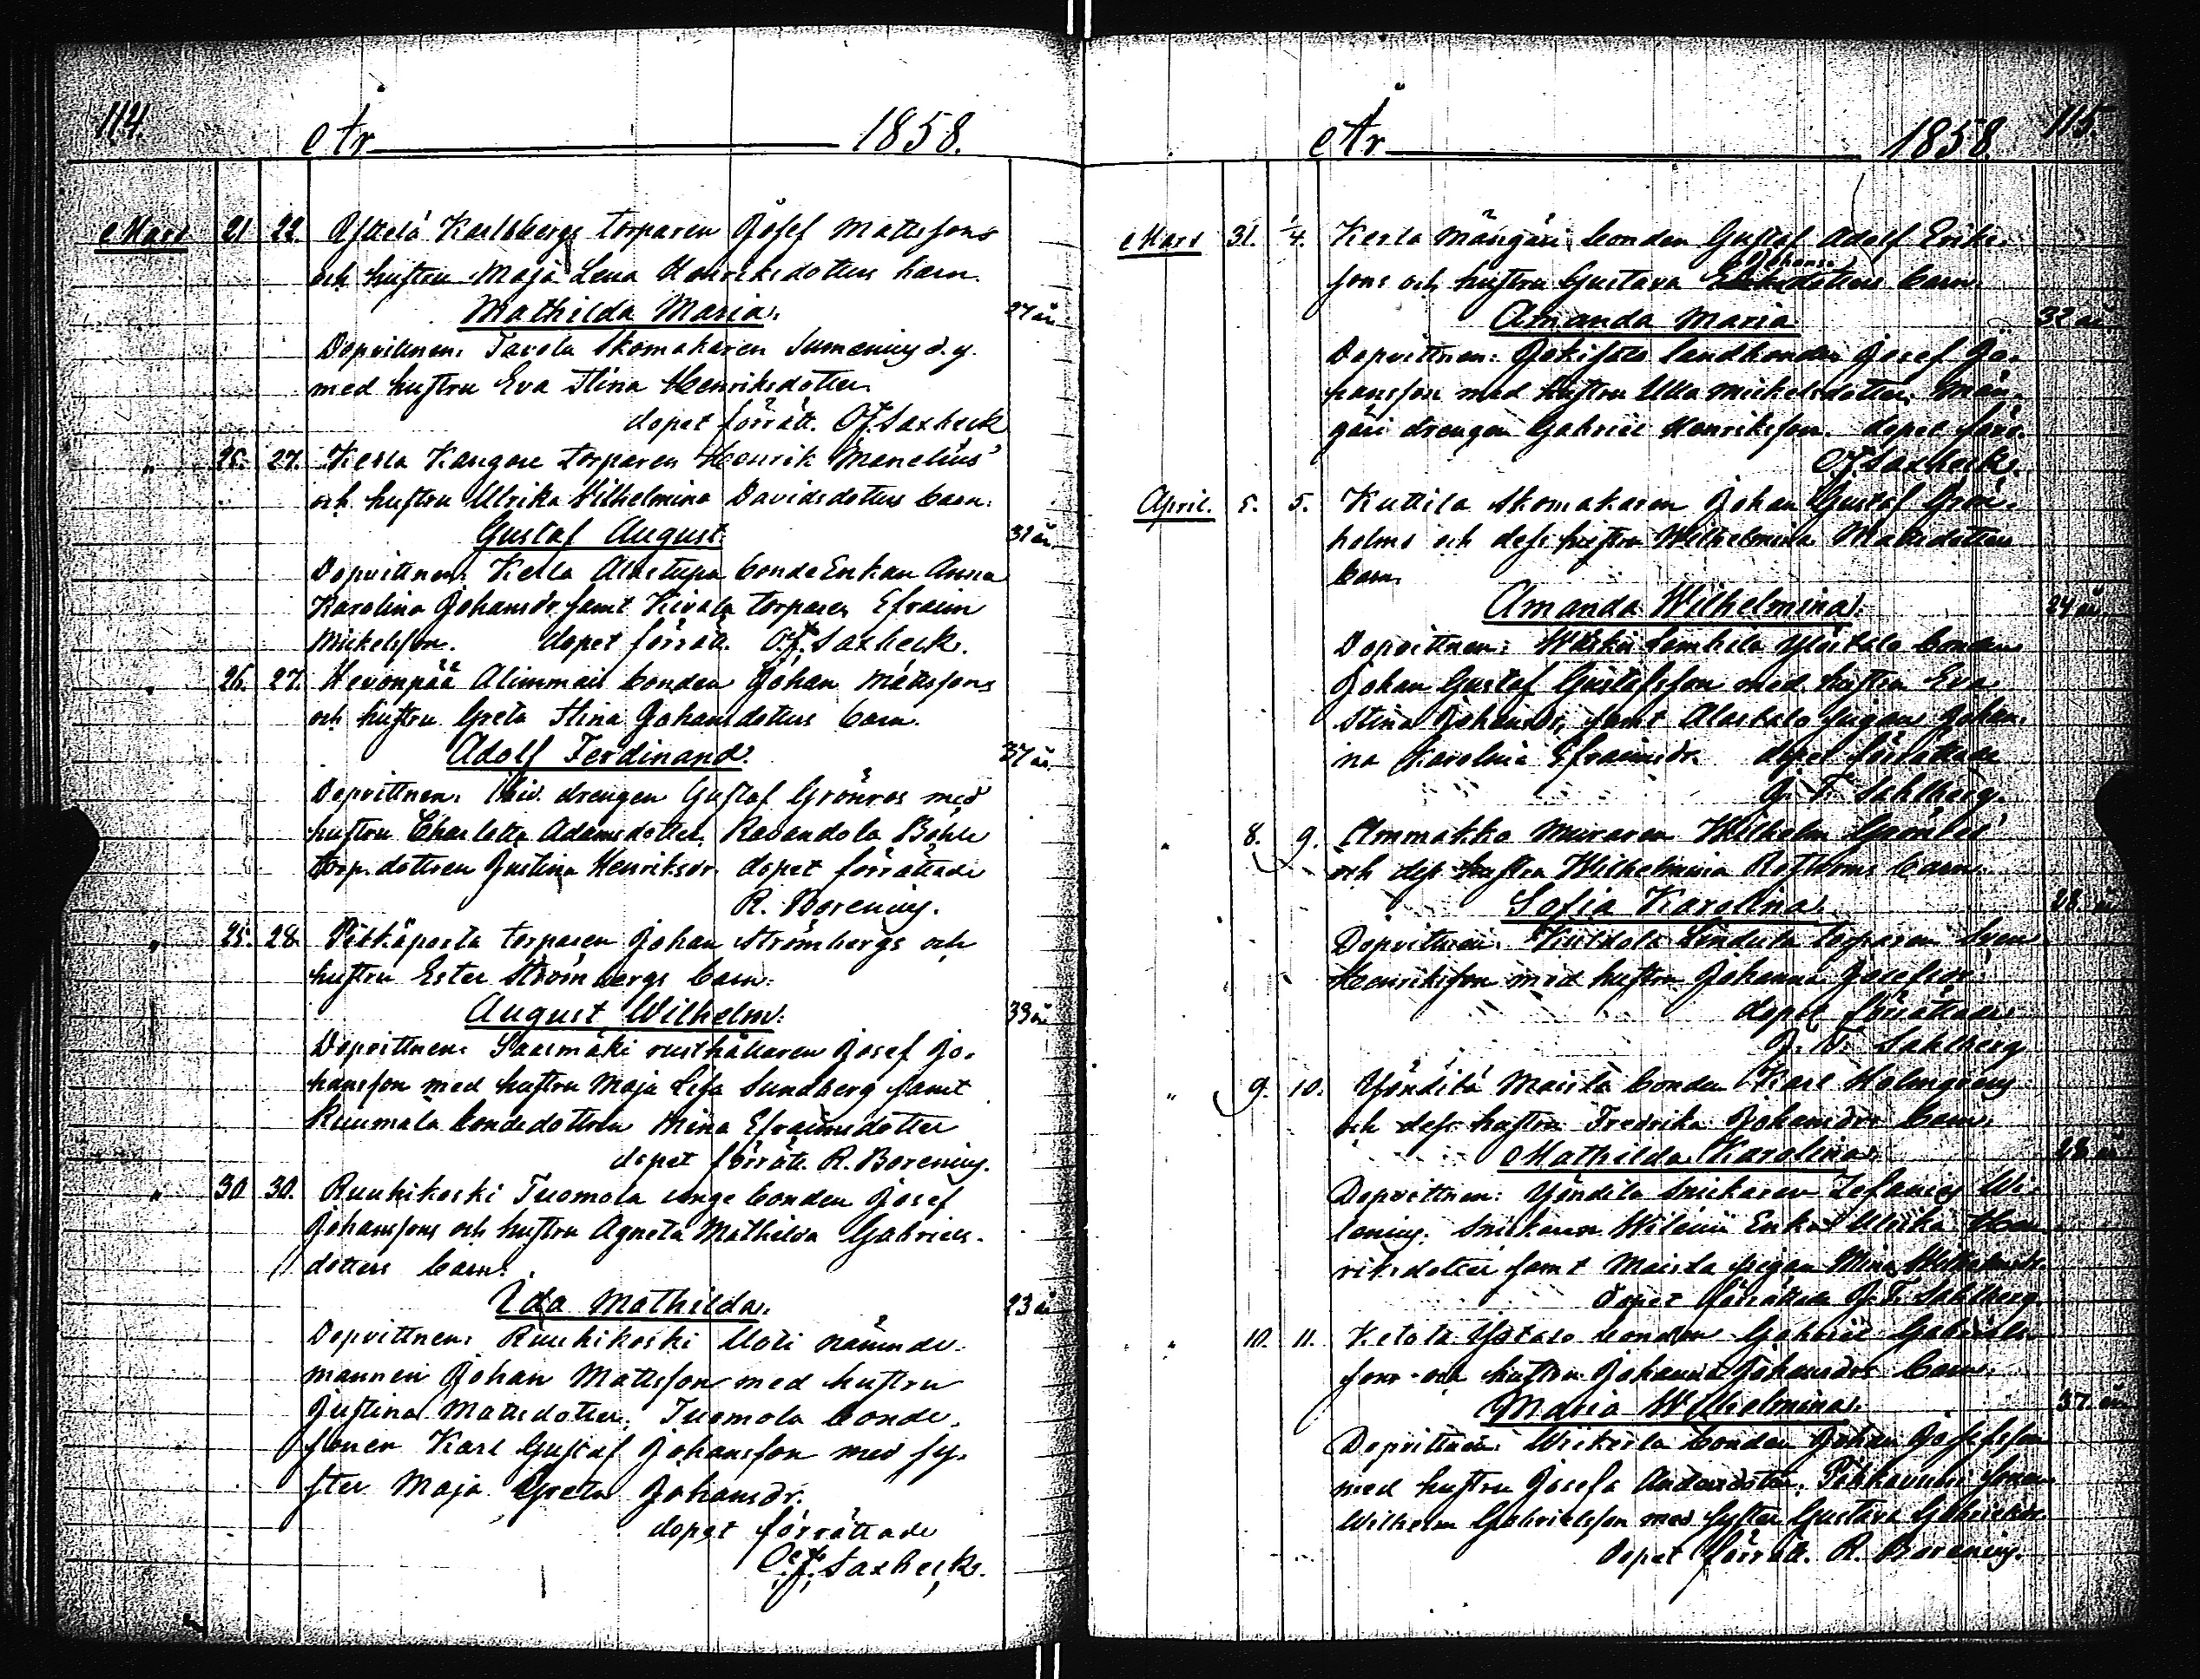 114.
År 1858.
Mars 21 22. Yttelä Karlsbergs torparen Josef Mattssons
och hustru Maja Lena Henriksdotters barn.
Mathilda Maria. 27 år
Dopvittnen: Tavela Skomakaren Sumenius d. y.
med hustru Eva Stina Henriksdotter.
dopet förrätt. O.F. Saxbeck
" 25. 27. Kerla Kangare torparen Henrik Manelius'
och hustru Ulrika Wilhelmina Davidsdotters barn.
Gustaf August 31 år
Dopvittnen: Kerla Alastupa bonde Enkan Anna
Karolina Johansdr samt Kivala torparen Efraim
Mickelsson. dopet förrätt. O.F. Saxbeck.
" 26. 27. Hevonpää Alimmais bonden Johan Mattssons
och hustru Greta Stina Johansdotters barn.
Adolf Ferdinand. 37 år
Dopvittnen: drengen Gustaf Grönros med
hustru Charlotta Adamsdotter. Ravandola Böhle
torp. dottren Justina Henriksdr. dopet förrättade
R. Borenius.
" 25. 28. Pitkäporta torparen Johan Strömbergs och
hustru Ester Strömbergs barn:
August Wilhelm. 33 år
Dopvittnen: Saarmäki rusthållaren Josef Jo-
hansson med hustru Maja Lisa Sundberg samt
Ruumala bondedottren Stina Efraimsdotter
dopet förrätt. R. Borenius.
" 30 30. Ruuhikoski Tuomola unge bonden Josef
Johanssons och hustru Agneta Mathilda Gabriels-
dotters barn:
Ida Mathilda. 23 år
Dopvittnen: Ruuhikoski Uoti nämnde-
mannen Johan Mattsson med hustru
Justina Mattsdotter; Tuomola bonde-
sonen Karl Gustaf Johansson med sy-
ster Maja Greta Johansdr.
dopet förrättade
O.F. Saxbeck.
115.
År 1858.
Mars 31. 1/4. Kerla Mängäri bonden Gustaf Adolf Eriks-
Johans-
sons och hustru Gustava dotters barn.
Amanda Maria 32 år.
Dopvittnen: landbonden Josef Jo-
hansson med hustru Ulla Mickelsdotter. Män-
gäri drengen Gabriel Henriksson. dopet förr.
O.F. Saxbeck.
April. 5. 5. Kuttila Skomakaren Johan Gustaf Grön-
holms och dess hustru Wilhelmina Mattsdotters
barn.
Amanda Wilhelmina. 24 år.
Dopvittnen: Ylöstalo bonden
Johan Gustaf Gustafsson med hustru Eva
Stina Johansdr, samt Alastalo pigan Johan-
na Karolina Efraimsdr. dopet förrättade
J. F. Sahlberg.
" 8. 9. Ammakko Muraren Wilhelm
och dess hustru Wilhelmina barn.
Sofia Karolina. 28 år
Dopvittnen: torparen Sven
Henriksson med hustru Johanna Josefsdr.
dopet förrättade
J. F. Sahlberg
" 9. 10. Yöndilä Maisla bonden Karl Holmqvists
och dess hustru Fredrika Johansdrs barn.
Mathilda Karolina. 28 år
Dopvittnen: Yöndilä Snickaren Zefanias Wi-
lenius. Snickaren Wilenii Enka Ulrika Hen-
riksdotter samt Maisla pigan Mina
dopet förrättade J. F. Sahlberg
" 10. 11. Ketola Ylitalo bonden Gabriel Gabriels-
sons och hustru Johanna Johansdrs barn.
Maria Wilhelmina. 37. år
Dopvittnen: bonden Johan Josefsson
med hustru Josefa Andersdotter; sonen
Wilhelm Gabrielsson med syster Gustava Gabrielsdr.
dopet förrätt. R. Borenius.